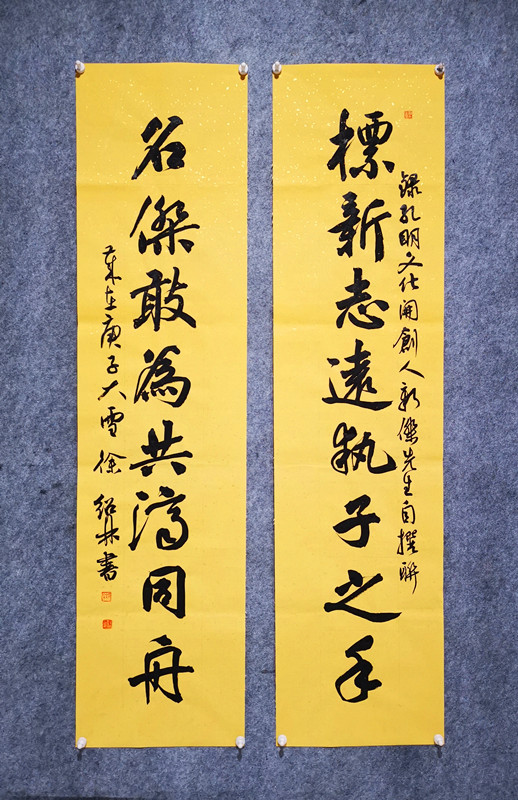 標新志遠執子之手
錄孔明文化開創人新傑先生自撰聯
名傑敢為共濟同舟
歲在庚子大雪徐紹林書